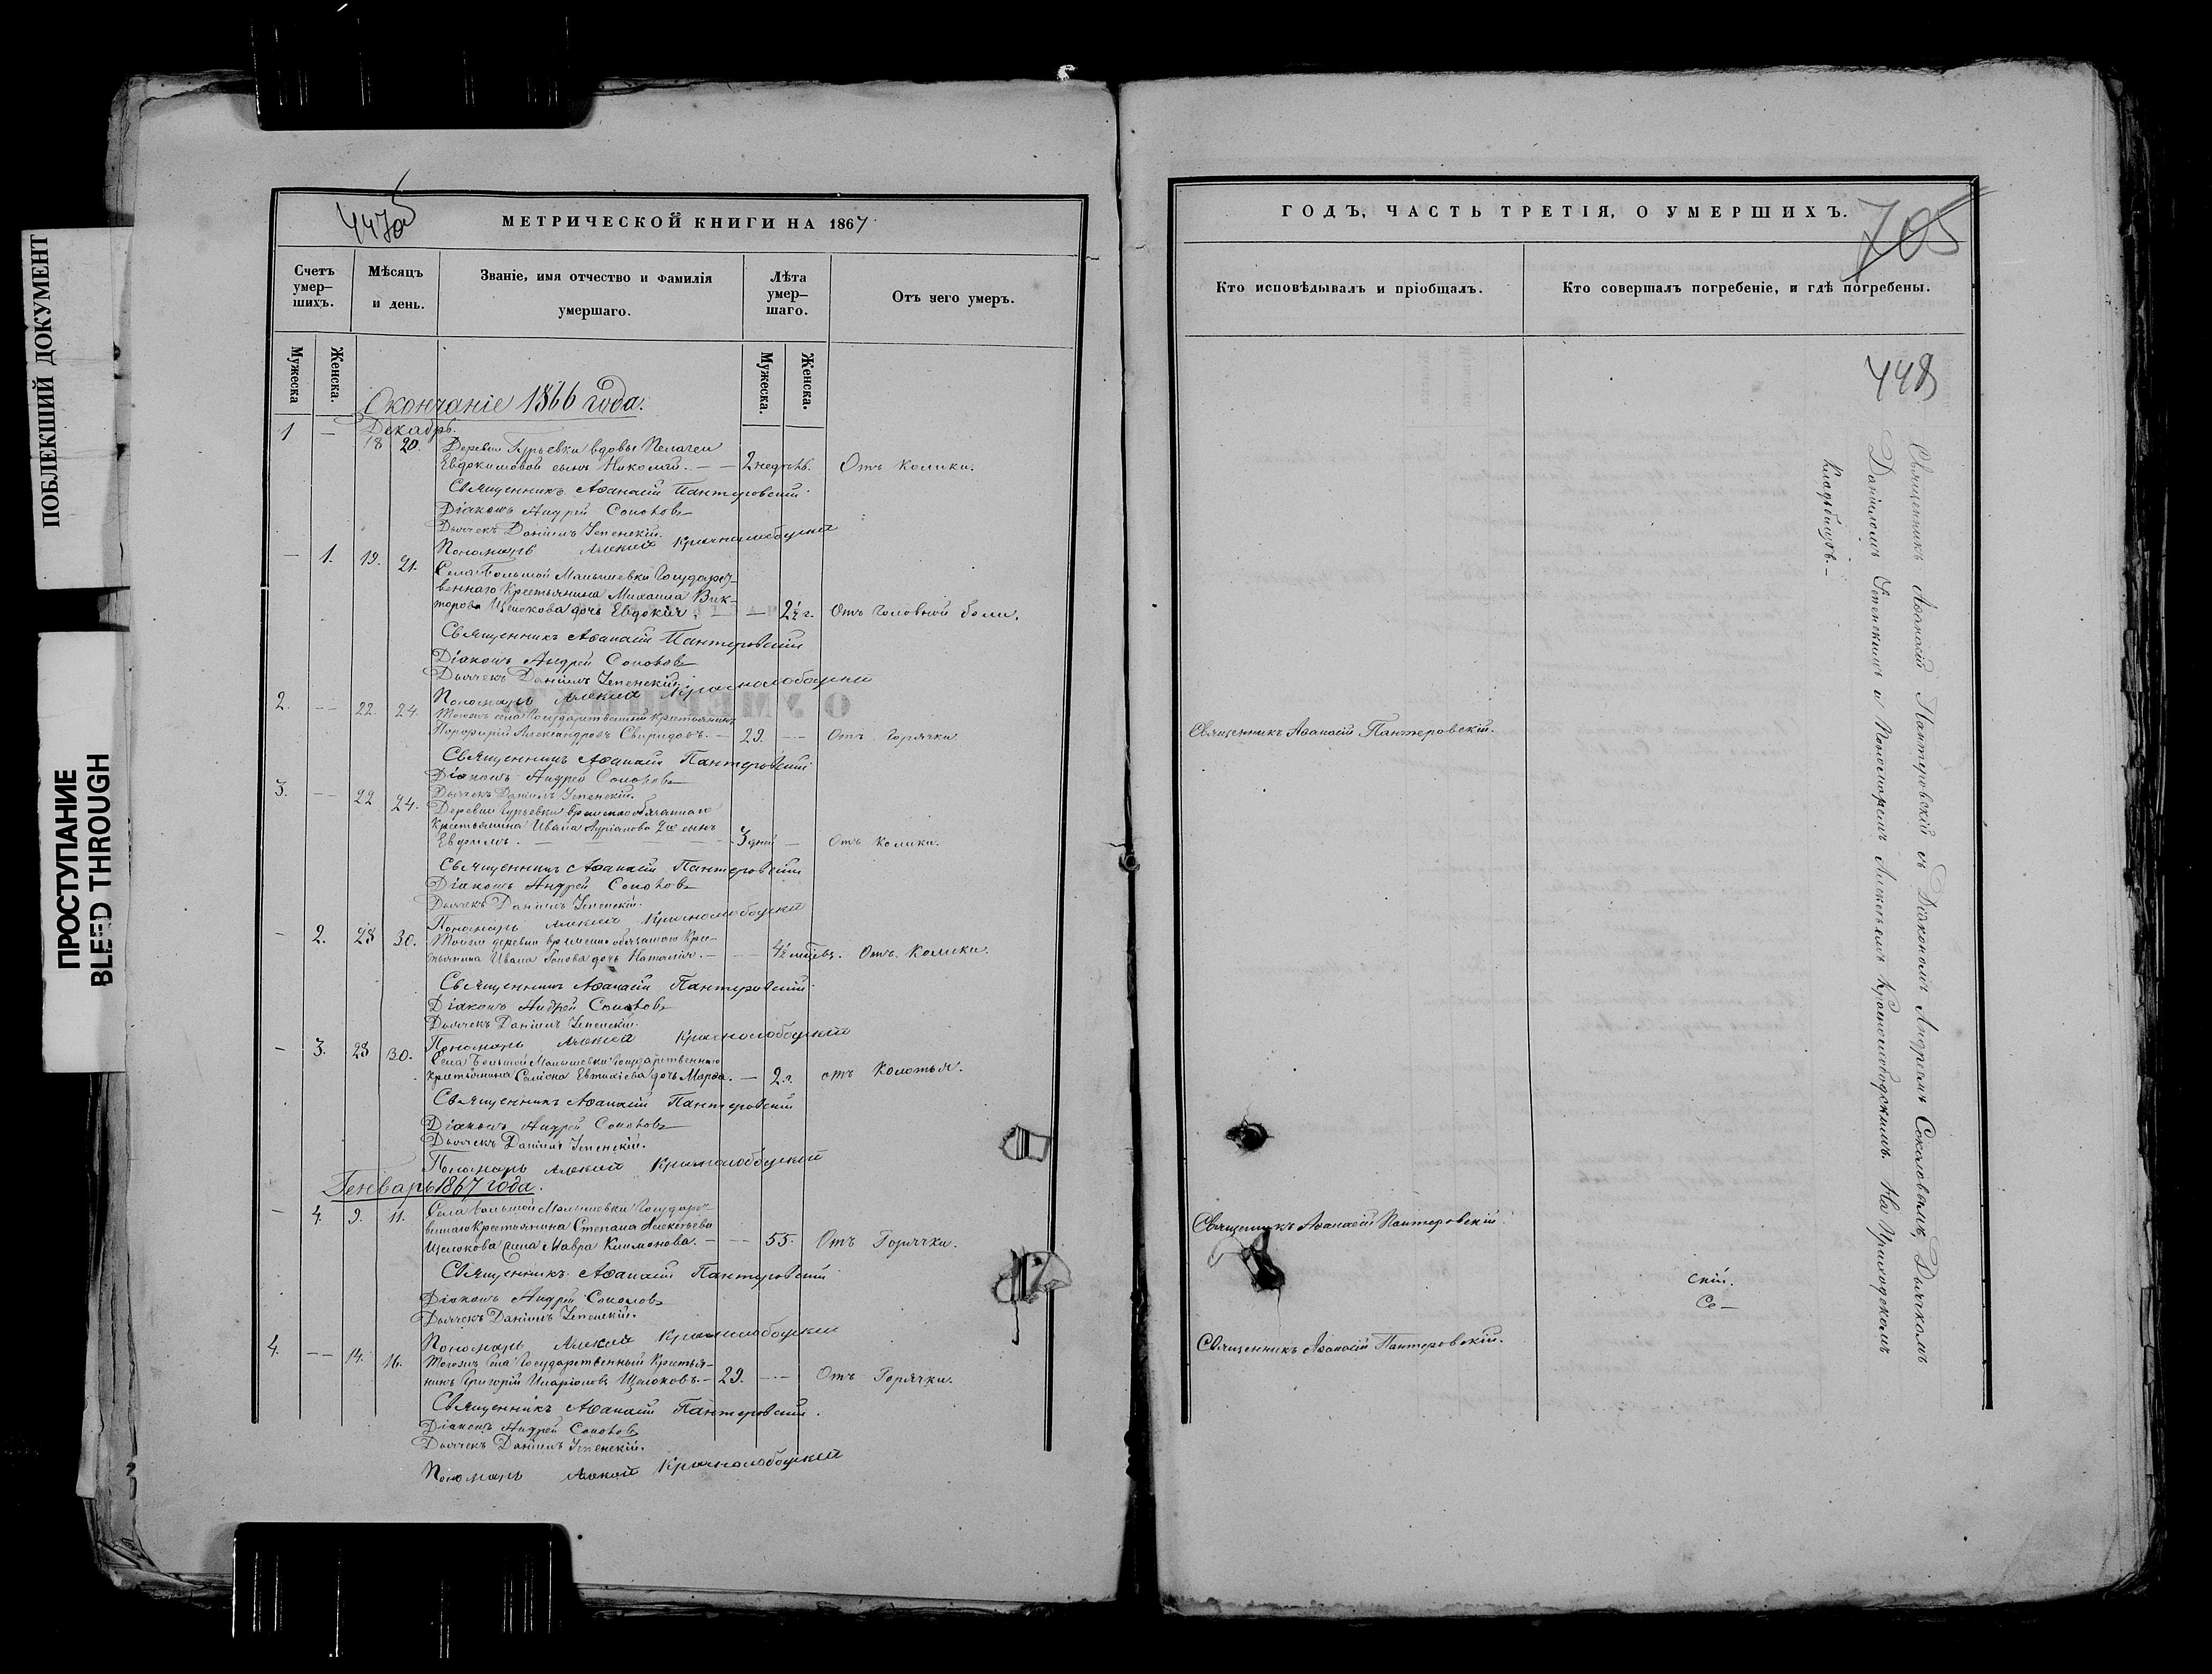 ПОБЛЕКШИЙ ДОКУМЕНТ
ПРОСТУПАНИЕ
BLEED THROUGH
447об
МЕТРИЧЕСКОЙ КНИГИ НА 1867
Счетъ умер-шихъ.
Мѣсяцъ и день.
Званіе, имя отчество и фамилія умершаго.
Лѣта умер-шаго.
Отъ чего умеръ.
Мужеска
Женска.
Мужеска.
Женска.
Окончаніе 1866 года.
Декабрь.
1 — 18 20. Деревни Гурьевки вдовы Пелагеи
Евдокимовой сынъ Николай. — — 2 недѣль. Отъ колики.
Священникъ Аѳанасій Пантеровскій.
Діаконъ Андрей Соколовъ
Дьячекъ Даніилъ Успенскій.
Пономарь Алексій Краснослободскій
— 1. 19. 21. Села Большой Малышевки Государст-
веннаго Крестьянина Михаила Вик-
торова Щелокова дочь Евдокія. — — 2½ г. Отъ головной боли.
Священникъ Аѳанасій Пантеровскій
Діаконъ Андрей Соколовъ
Дьячекъ Даніилъ Успенскій.
Пономарь Алексій Краснослободскій
2. — 22. 24. Тогожъ села Государственный крестьянинъ
Порфирій Александровъ Свиридовъ. — 29. — Отъ горячки
Священникъ Аѳанасій Пантеровскій
Діаконъ Андрей Соколовъ
Дьячекъ Даніилъ Успенскій.
3. — 22 24. Деревни Гурьевки временнообязаннаго
Крестьянина Ивана сынъ
Евфимъ. — 3 дней — Отъ колики.
Священникъ Аѳанасій Пантеровскій
Діаконъ Андрей Соколовъ
Дьячекъ Даніилъ Успенскій.
Пономарь Алексій Краснослободскій
— 2. 28 30. Тойже деревни временно обязаннаго Кре-
стьянина Ивана дочь Наталія. — — Отъ колики.
Священникъ Аѳанасій Пантеровскій.
Діаконъ Андрей Соколовъ
Дьячекъ Даніилъ Успенскій.
Пономарь Алексій Краснослободскій
— 3. 28 30. Села Большой Малышевки Государственнаго
Крестьянина Евтихіева дочь Марѳа. — 2 г. отъ колотья.
Священникъ Аѳанасій Пантеровскій
Діаконъ Андрей Соколовъ
Дьячекъ Даніилъ Успенскій.
Пономарь Алексій Краснослободскій
Генварь 1867 года.
— 4. 9. 11. Села Большой Малышевки Государст-
веннаго Крестьянина Степана Алексѣева
Щелокова жена Мавра Климонова. — — 55. Отъ Горячки.
Священникъ Аѳанасій Пантеровскій
Діаконъ Андрей Соколовъ
Дьячекъ Даніилъ Успенскій.
Пономарь Алексій Краснослободскій
4. — 14. 16. Тогожъ Села Государственный Крестья-
нинъ Григорій Иларіоновъ Щелоковъ. — 29. — Отъ Горячки.
Священникъ Аѳанасій Пантеровскій.
Діаконъ Андрей Соколовъ
Дьячекъ Даніилъ Успенскій.
Пономарь Алексій Краснослободскій
ГОДЪ, ЧАСТЬ ТРЕТІЯ, О УМЕРШИХЪ.
705
Кто исповѣдывалъ и пріобщалъ.
Кто совершалъ погребеніе, и гдѣ погребены.
448
Священникъ Аѳанасій Пантеровскій.
Священникъ Аѳанасій Пантеровскій.
Священникъ Аѳанасій Пантеровскій.
Священникъ Аѳанасій Пантеровскій съ Діакономъ Андреемъ Соколовымъ, Дьячкомъ
Даніиломъ Успенскимъ и Пономаремъ Алексѣемъ Краснослободскимъ. На Приходскомъ
Кладбищѣ. —
скій.
Со —